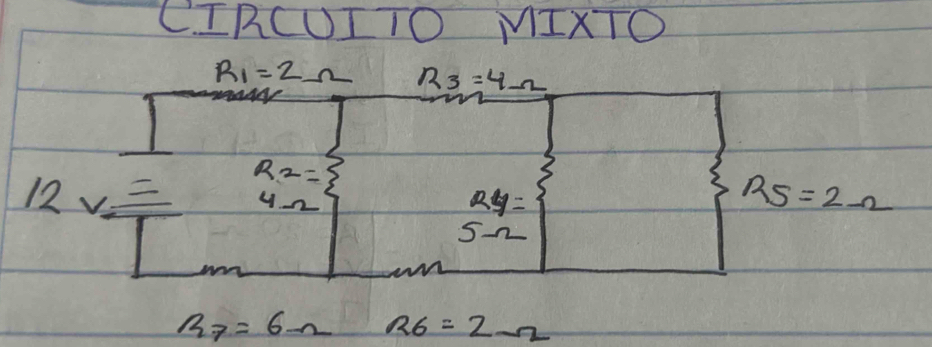 CIRCUITO MIXTO
R1=2Ω
R3=4Ω
12 v
R2=
4Ω
R4=
5Ω
R5=2Ω
R7=6Ω
R6=2Ω